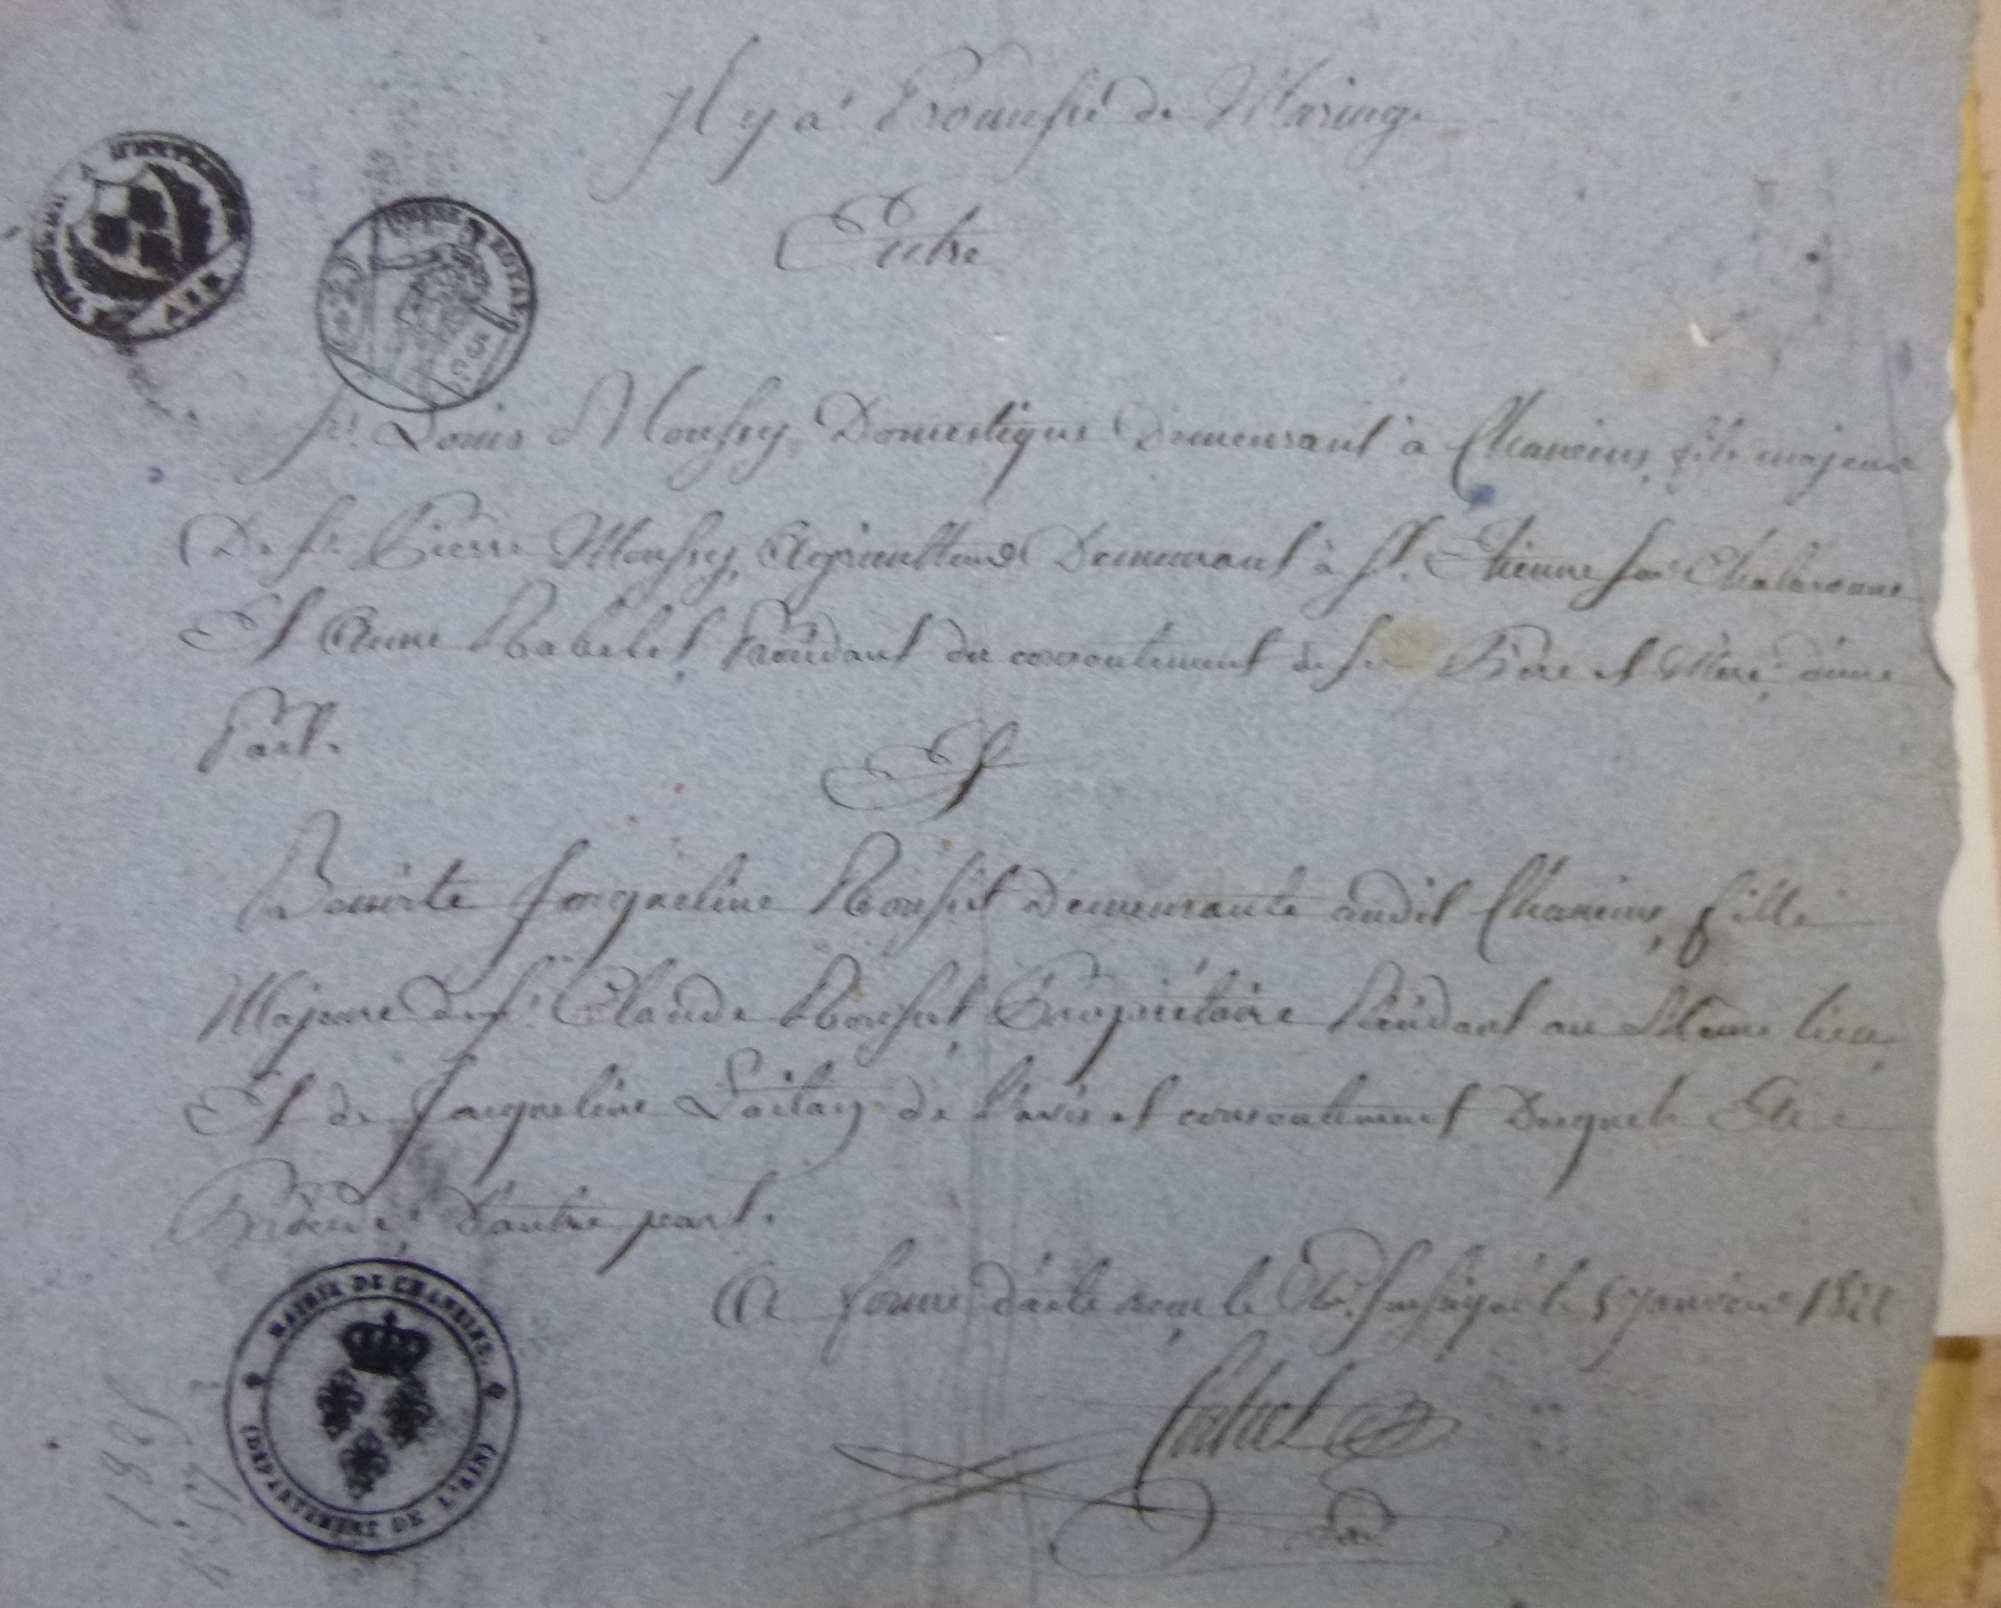 Il y a Promesse de Mariage
Entre
Sr. Louis Moussy, Domestique Demeurant à Chaneins, fils majeur
De Sr. Pierre Moussy, Agriculteur Demeurant à St. Etienne sur Chalaronne
Et Anne Rabelet, Procédant du consentement de ses Père et Mère, d'une
Part.
Et
Benoite Jacqueline Rousset Demeurante audit Chaneins, fille
Majeure du Sr. Claude Rousset, Propriétaire Résidant au Meme lieu,
Et de Jacqueline Laitay de l'avis et consentement Desquels Elle
Procède, d'autre part.
A forme d'acte reçu le Nre. Soussigné le 5 Janvier 1821
MAIRIE DE CHANEINS.
(DEPARTEMENT DE L'AIN)
TIMBRE ROYAL
AIN
1821